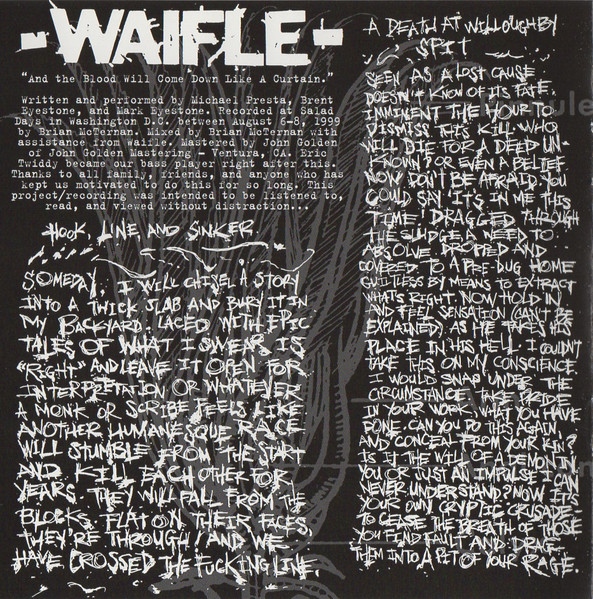 -WAIFLE-
"And the Blood Will Come Down Like A Curtain."
Written and performed by Michael Presta, Brent
Eyestone, and Mark Eyestone. Recorded at Salad
Days in Washington D.C. between August 6-8, 1999
by Brian McTernan. Mixed by Brian McTernan with
assistance from Waifle. Mastered by John Golden
of John Golden Mastering - Ventura, CA. Eric
Twiddy became our bass player right after this.
Thanks to all family, friends, and anyone who has
kept us motivated to do this for so long. This
project/recording was intended to be listened to,
read, and viewed without distraction...
HOOK, LINE AND SINKER
SOMEDAY. I WILL CHISEL A STORY
INTO A THICK SLAB AND BURY IT IN
MY BACKYARD. LACED WITH EPIC
TALES OF WHAT I SWEAR IS
"RIGHT" AND LEAVE IT OPEN FOR
INTERPRETATION OR WHATEVER
A MONK OR SCRIBE FEELS LIKE
ANOTHER HUMANESQUE RACE
WILL STUMBLE FROM THE START
AND KILL EACH OTHER FOR
YEARS. THEY WILL FALL FROM THE
BLOCKS. FLAT ON THEIR FACES,
THEY'RE THROUGH! AND WE
HAVE CROSSED THE FUCKING LINE.
A DEATH AT WILLOUGHBY
SPIT
SEEN AS A LOST CAUSE
DOESN'T KNOW OF ITS FATE.
IMMINENT THE HOUR TO
DISMISS THIS KILL. WHO
WILL DIE FOR A DEED UN-
KNOWN? OR EVEN A BELIEF
NOW DON'T BE AFRAID. YOU
COULD SAY IT'S IN ME THIS
TIME! DRAGGED THROUGH
THE SLUDGE A NEED TO
ABSOLVE. DROPPED AND
COVERED. TO A PRE-DUG HOME
GUILTLESS BY MEANS TO EXTRACT
WHAT'S RIGHT. NOW HOLD IN
AND FEEL SENSATION (CAN'T BE
EXPLAINED). AS HE TAKES HIS
PLACE IN HIS HELL. I COULDN'T
TAKE THIS ON MY CONSCIENCE
I WOULD SNAP UNDER THE
CIRCUMSTANCE. TAKE PRIDE
IN YOUR WORK, WHAT YOU HAVE
DONE. CAN YOU DO THIS AGAIN,
AND CONCEAL FROM YOUR KIN?
IS IT THE WILL OF A DEMON IN
YOU OR JUST AN IMPULSE I CAN
NEVER UNDERSTAND? NOW IT'S
YOUR OWN CRYPTIC CRUSADE-
TO CEASE THE BREATH OF THOSE
YOU FIND FAULT AND DRAG
THEM INTO A PIT OF YOUR RAGE.